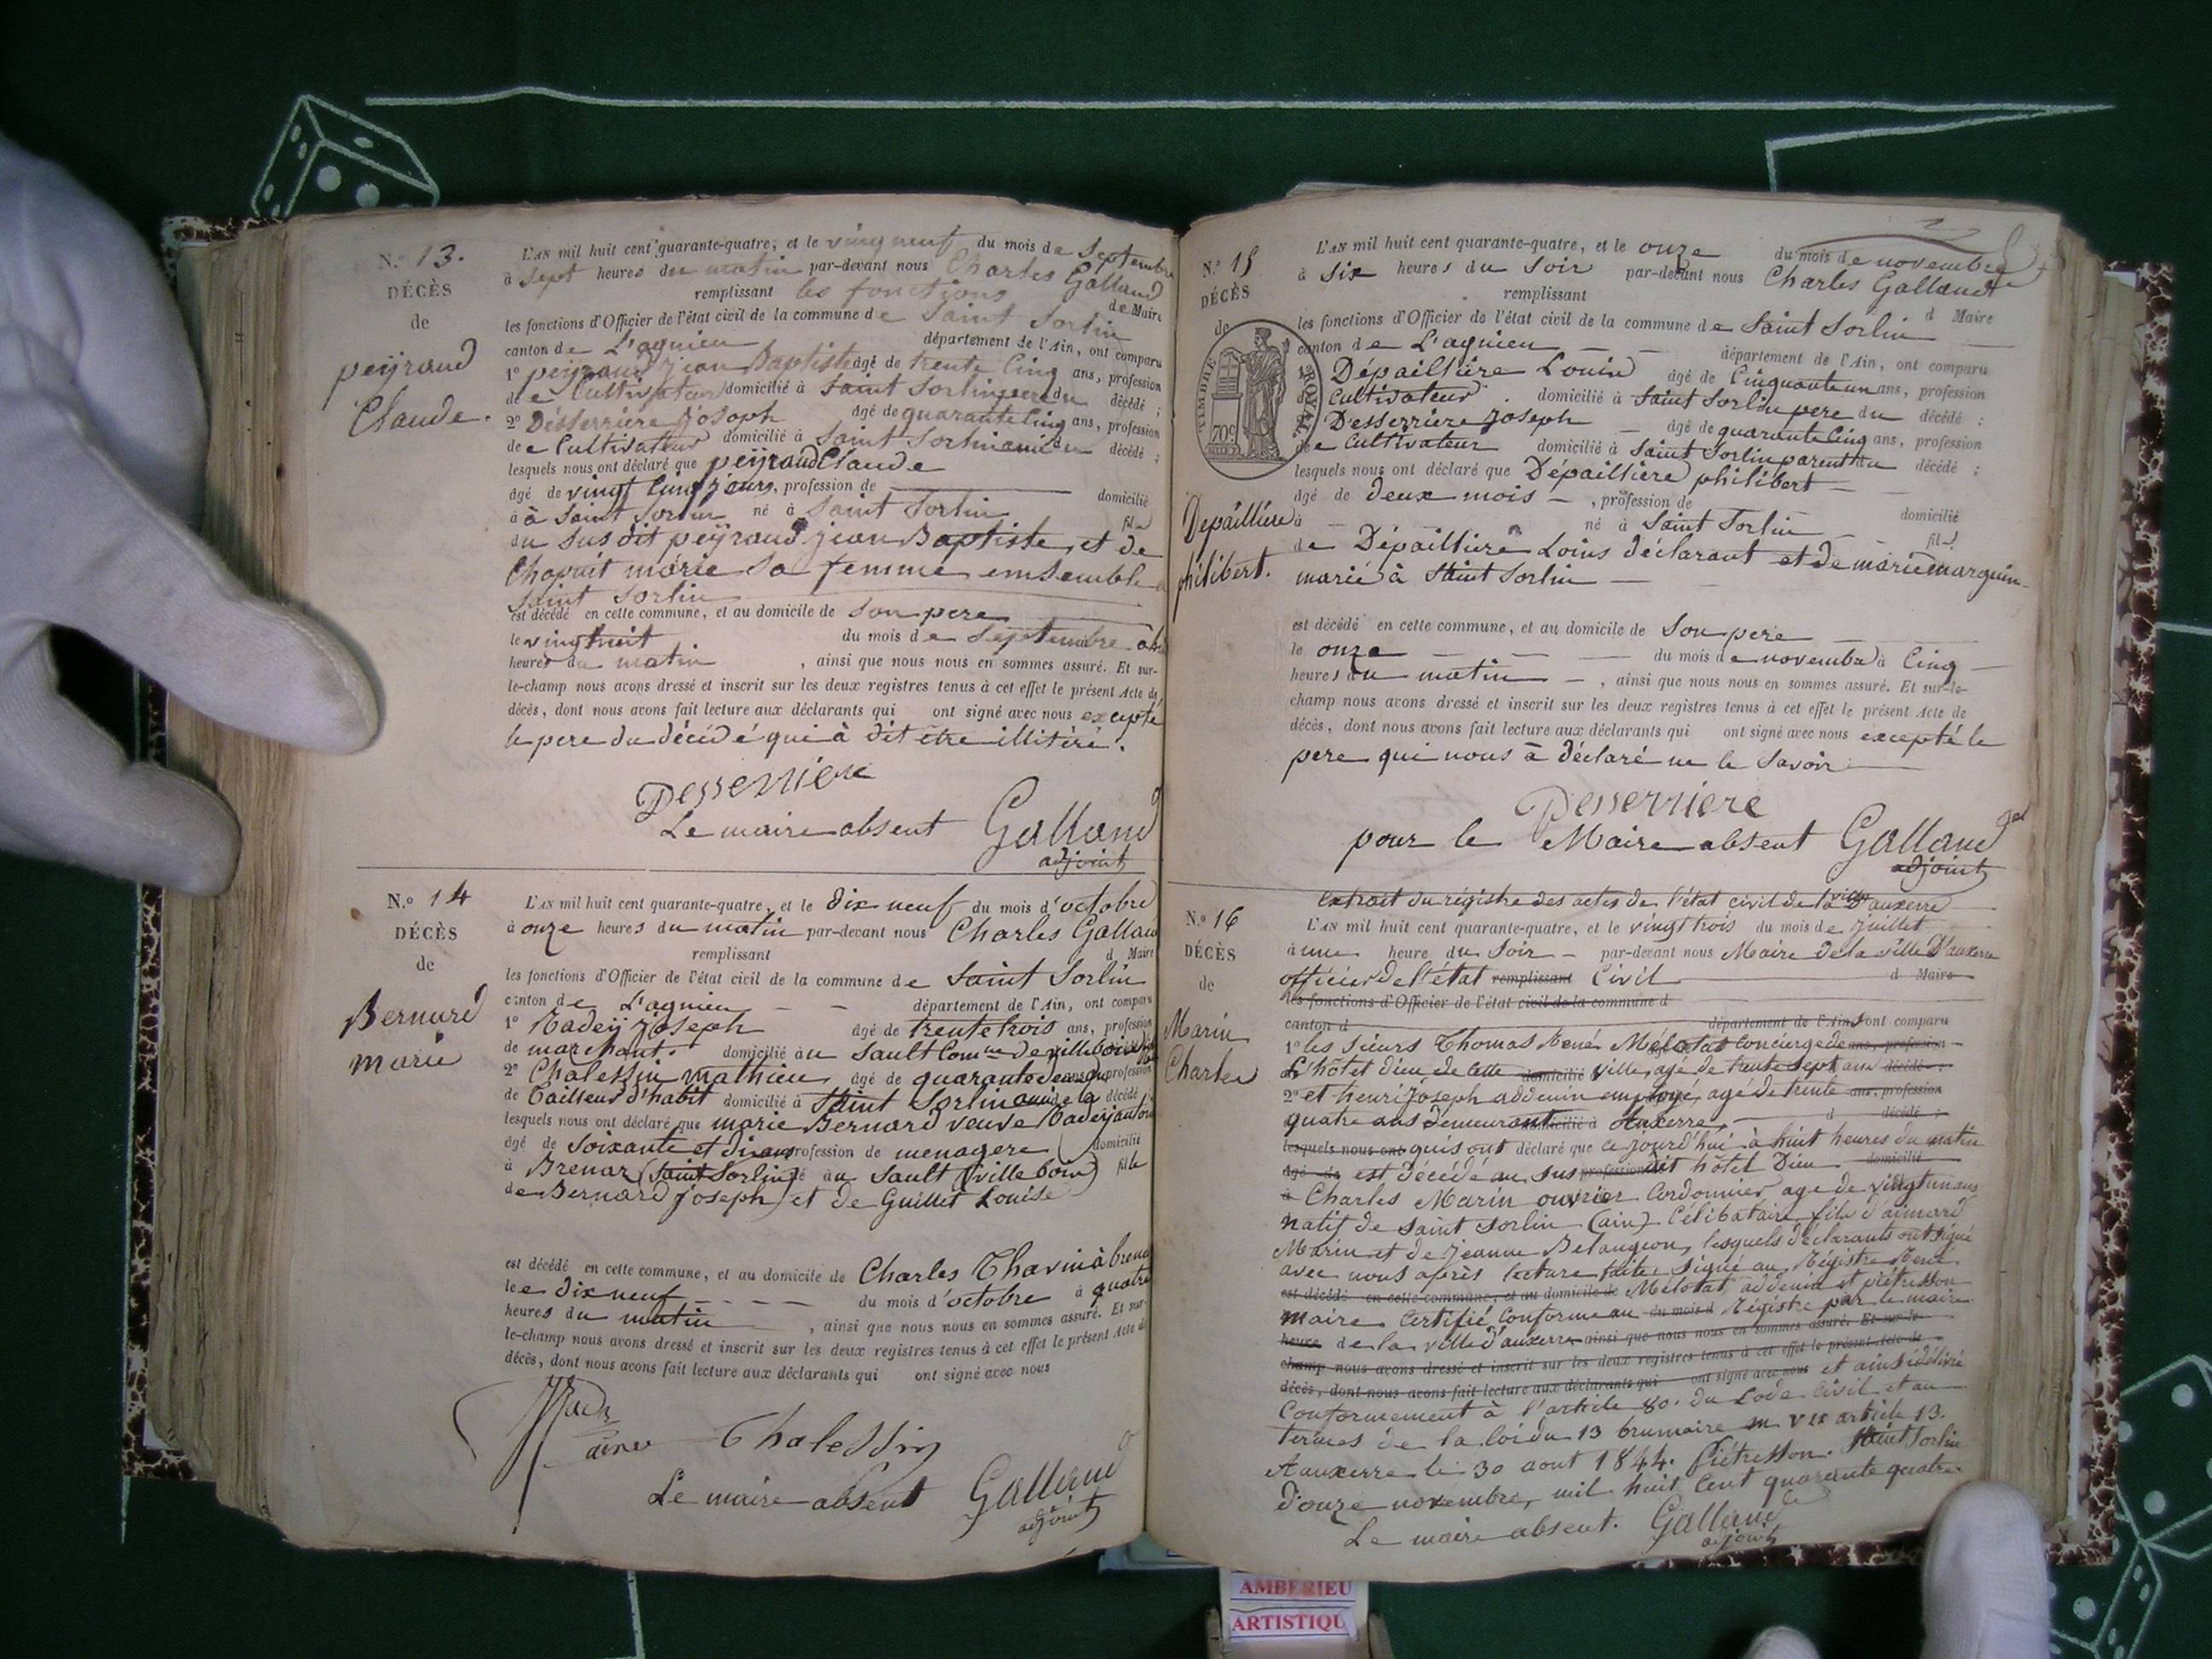 N.o 13.
DÉCÈS
de
peÿraud
Claude.
L'AN mil huit cent quarante-quatre, et le vingt neuf du mois de Septembre
à Sept heures du matin par-devant nous Charles Galland
remplissant les fonctions de Maire
les fonctions d'Officier de l'état civil de la commune de Saint Sorlin
canton de L'agnieu département de l'Ain, ont comparu
1o peÿraud jean Baptiste âgé de trente Cinq ans, profession
de Cultivateur domicilié à Saint Sorlin pere du décédé ;
2o Desserriere Joseph âgé de quarante Cinq ans, profession
de Cultivateur domicilié à Saint Sorlin ami du décédé ;
lesquels nous ont déclaré que peÿraud Claude
âgé de vingt Cinq jours, profession de domicilié
à à Saint Sorlin né à Saint Sorlin fils
du susdit peÿraud jean Baptiste, et de
Chapuit marie sa femme ensemble à
Saint Sorlin
est décédé en cette commune, et au domicile de Son pere
le vingthuit du mois de Septembre à
heures du matin , ainsi que nous nous en sommes assuré. Et sur-
le-champ nous avons dressé et inscrit sur les deux registres tenus à cet effet le présent Acte de
décès, dont nous avons fait lecture aux déclarants qui ont signé avec nous excepté
le pere du décédé qui à dit être illitéré.
Desserriere
Le maire absent Galland
adjoint
N.o 14
DÉCÈS
de
Bernard
marie
L'AN mil huit cent quarante-quatre, et le dix neuf du mois d'octobre
à onze heures du matin par-devant nous Charles Galland
remplissant d Maire
les fonctions d'Officier de l'état civil de la commune de Saint Sorlin
canton de L'agnieu département de l'Ain, ont comparu
1o Badeÿ Joseph âgé de trente trois ans, profession
de marchant. domicilié au Sault Comne de villeboix
2o Chalessin mathieu âgé de quarante deux profession
de Tailleur d'habit domicilié à Saint Sorlin ami de la décédé
lesquels nous ont déclaré que marie Bernard veuve Badeÿ
âgé de Soixante et dix ans profession de menagere domicilié
à Brenaz (Saint Sorlin) né au Sault (villeboix) fille
de Bernard joseph et de Guillet Louise
est décédé en cette commune, et au domicile de Charles Thavin à
le dix neuf du mois d'octobre à quatre
heures du matin , ainsi que nous nous en sommes assuré. Et sur-
le-champ nous avons dressé et inscrit sur les deux registres tenus à cet effet le présent Acte de
décès, dont nous avons fait lecture aux déclarants qui ont signé avec nous
Chalessin
Le maire absent Galland
adjoint
N.o 15
DÉCÈS
de
TIMBRE ROYAL
70c
Depaillière
philibert.
L'AN mil huit cent quarante-quatre, et le onze du mois de novembre
à Six heures du Soir par-devant nous Charles Galland
remplissant d Maire
les fonctions d'Officier de l'état civil de la commune de Saint Sorlin
canton de L'agnieu département de l'Ain, ont comparu
Dépaillière Louis âgé de Cinquante un ans, profession
Cultivateur domicilié à Saint Sorlin pere du décédé :
Desserrière Joseph âgé de quarante Cinq ans, profession
de Cultivateur domicilié à Saint Sorlin parent du décédé ;
lesquels nous ont déclaré que Dépaillière philibert
âgé de deux mois , profession de domicilié
à né à Saint Sorlin fils
de Dépaillière Louis déclarant et de marie marquin
marié à Saint Sorlin
est décédé en cette commune, et au domicile de Son pere
le onze du mois de novembre à Cinq
heures du matin , ainsi que nous nous en sommes assuré. Et sur-le-
champ nous avons dressé et inscrit sur les deux registres tenus à cet effet le présent Acte de
décès, dont nous avons fait lecture aux déclarants qui ont signé avec nous excepté le
pere qui nous à déclaré ne le Savoir
Desserriere
pour le Maire absent Galland
adjoint
N.o 16
DÉCÈS
de
Marin
Charles
Extrait du régistre des actes de l'état civil de la ville D'auxerre
L'AN mil huit cent quarante-quatre, et le vingt trois du mois de juillet
à une heure du Soir par-devant nous Maire de la ville D'auxerre
officier de l'état remplissant Civil d Maire
les fonctions d'Officier de l'état civil de la commune d
canton d département de l'Ain, ont comparu
1o les Sieurs Thomas René Mélotat Concierge de ans, profession
L'hôtel dieu de Cette domicilié ville, age de trente Sept ans décédé ;
2o et henri joseph addenin employé, agé de trente ans, profession
quatre ans demeurant domicilié à Auxerre, d décédé ;
lesquels nous ont qui sont déclaré que ce jourd'hui à huit heures du matin
âgé de est décédé au sus profession dit hôtel Dieu domicilié
à Charles Marin ouvrier Cordonnier, age de vingt un ans
natif de Saint Sorlin (ain) Célibataire fils d'aimard
Marin et de jeanne Belangeon, lesquels déclarants ont signé
avec nous après lecture faite. Signé au Régistre René
est décédé en cette commune, et au domicile de Mélotat, addenin et piétresson
maire Certifié Conforme au du mois d régistre par le maire
heure de la ville d'auxerre ainsi que nous nous en sommes assuré. Et sur-le-
champ nous avons dressé et inscrit sur les deux registres tenus à cet effet le présent Acte de
décès, dont nous avons fait lecture aux déclarants qui ont signé avec nous et ainsi délivré
Conformement à l'article 80. du Code Civil et au
termes de la loi du 13 brumaire an VII article 13.
A auxerre le 30 aout 1844. Piétresson. Saint Sorlin
d'onze novembre, mil huit Cent quarante quatre.
Le maire absent. Galland
adjoint
AMBERIEU
ARTISTIQU